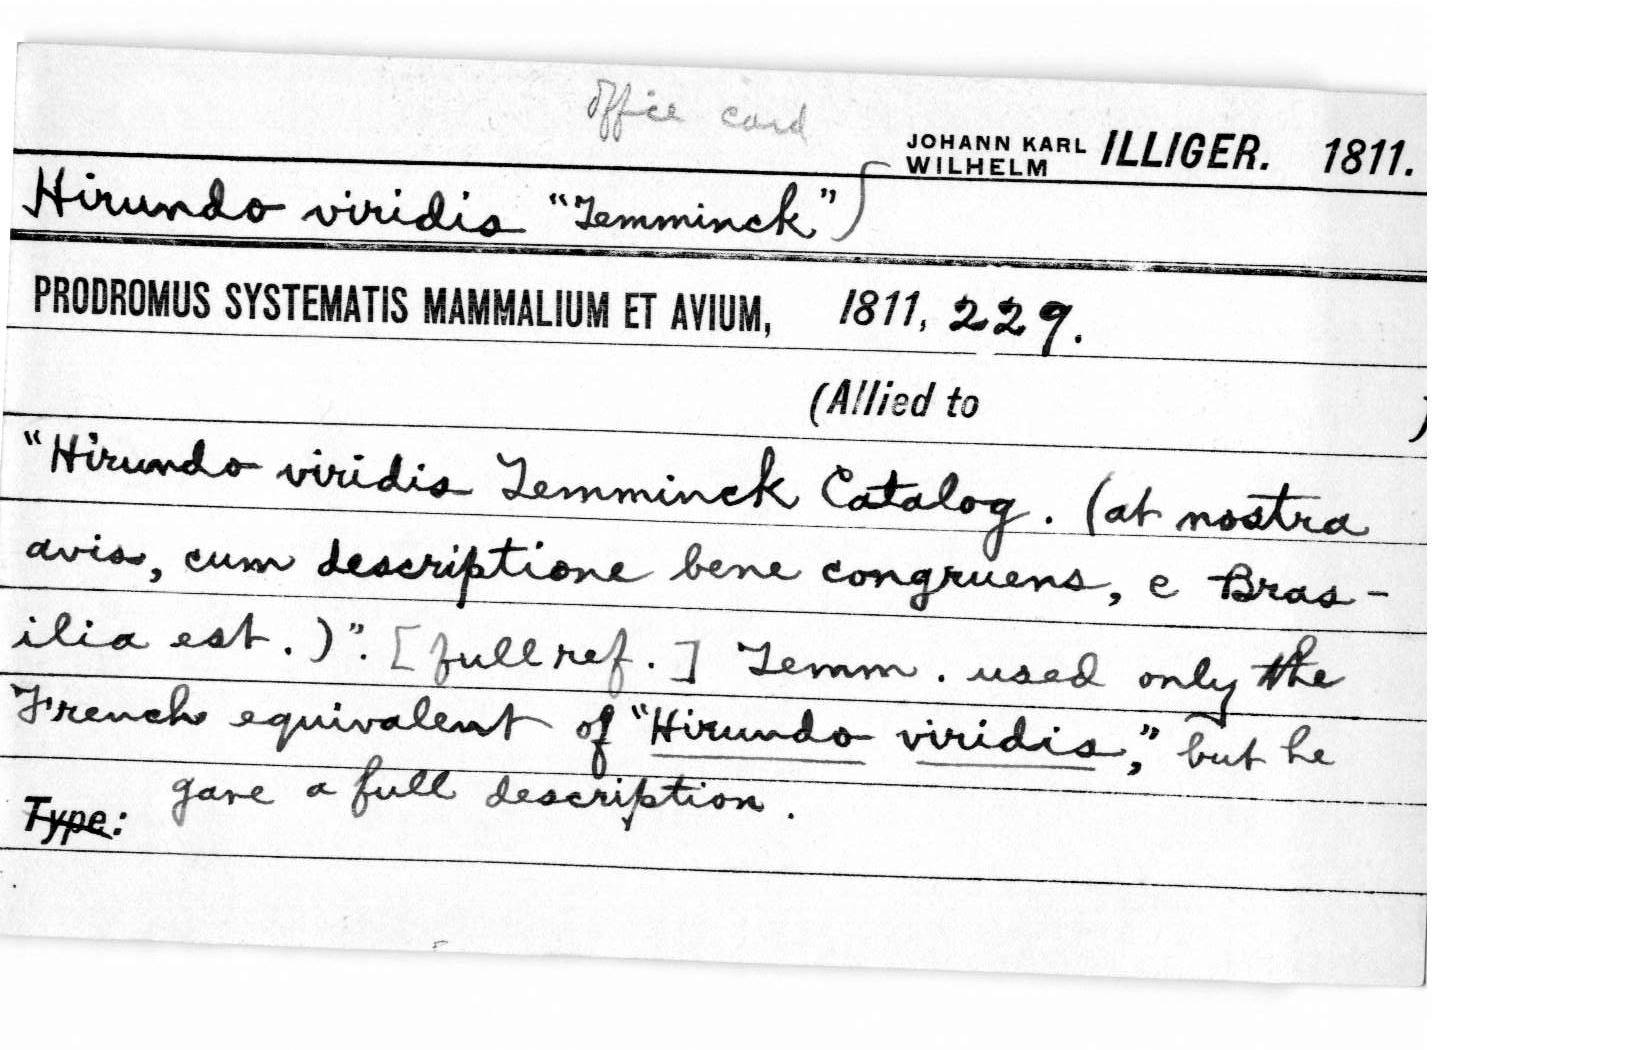 office card
JOHANN KARL WILHELM ILLIGER. 1811.
Hirundo viridis "Temminck")
PRODROMUS SYSTEMATIS MAMMALIUM ET AVIUM, 1811, 229.
(Allied to )
"Hirundo viridis Temminck Catalog. (at nostra
avis, cum descriptione bene congruens, e Bras-
ilia est.)". [full ref.] Temm. used only the
French equivalent of "Hirundo viridis," but he
gave a full description.
Type: